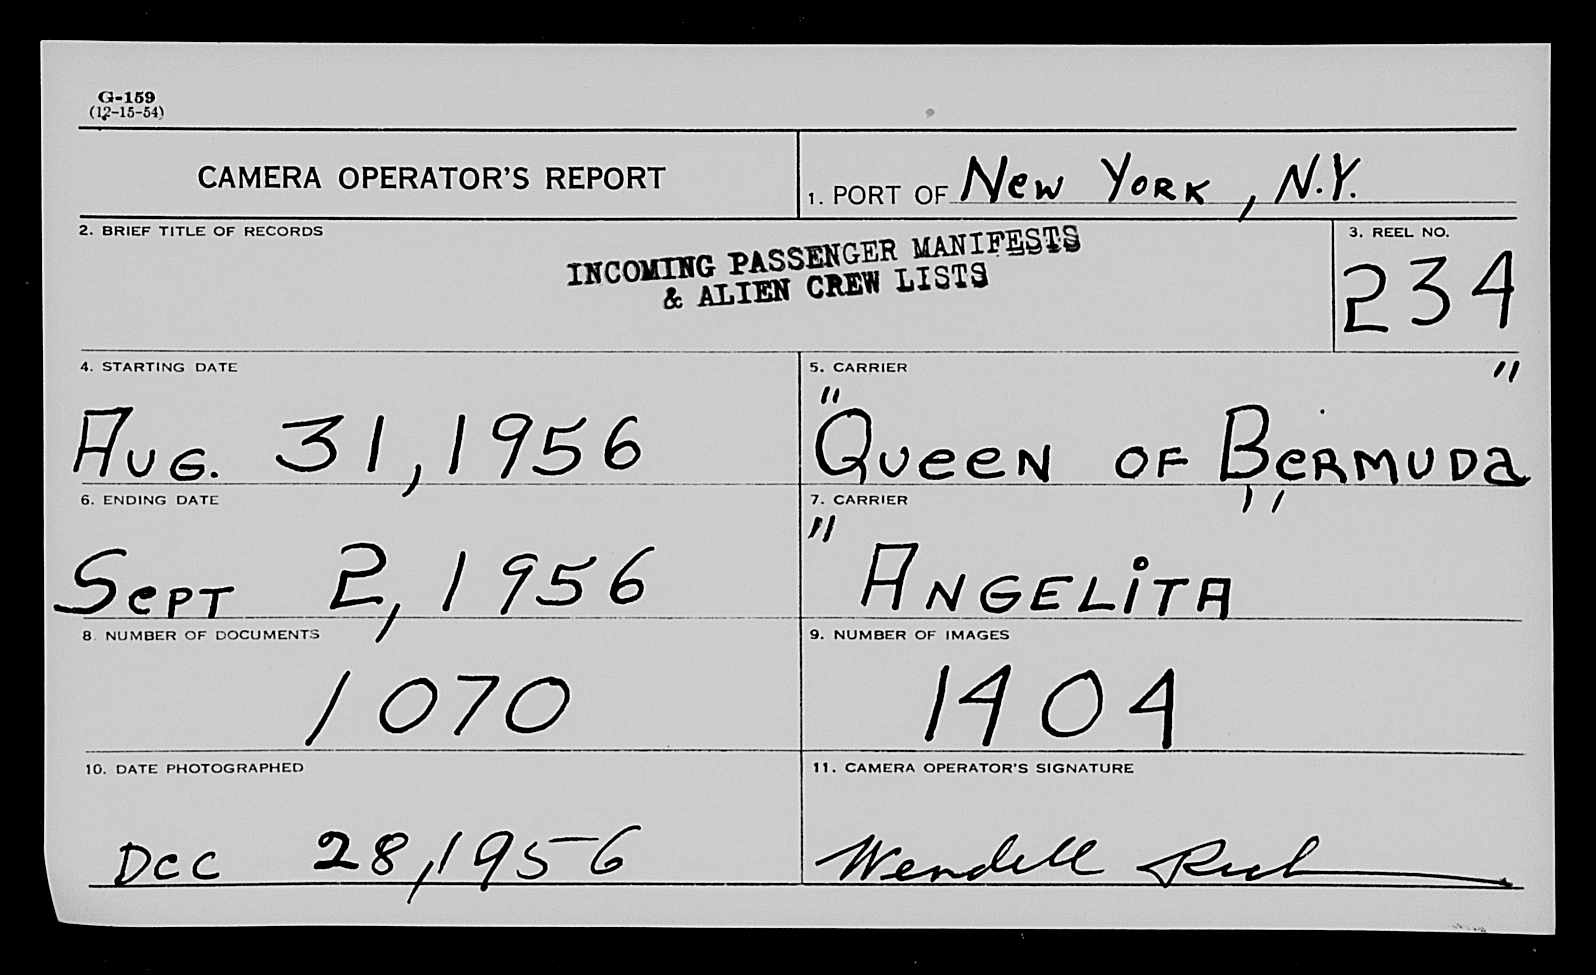 G-159
(12-15-54)
CAMERA OPERATOR'S REPORT
1. PORT OF New York, N.Y.
2. BRIEF TITLE OF RECORDS
INCOMING PASSENGER MANIFESTS
& ALIEN CREW LISTS
3. REEL NO.
234
4. STARTING DATE
Aug. 31, 1956
5. CARRIER
"Queen of Bermuda"
6. ENDING DATE
Sept 2, 1956
7. CARRIER
"Angelita"
8. NUMBER OF DOCUMENTS
1070
9. NUMBER OF IMAGES
1404
10. DATE PHOTOGRAPHED
Dec 28, 1956
11. CAMERA OPERATOR'S SIGNATURE
Wendell